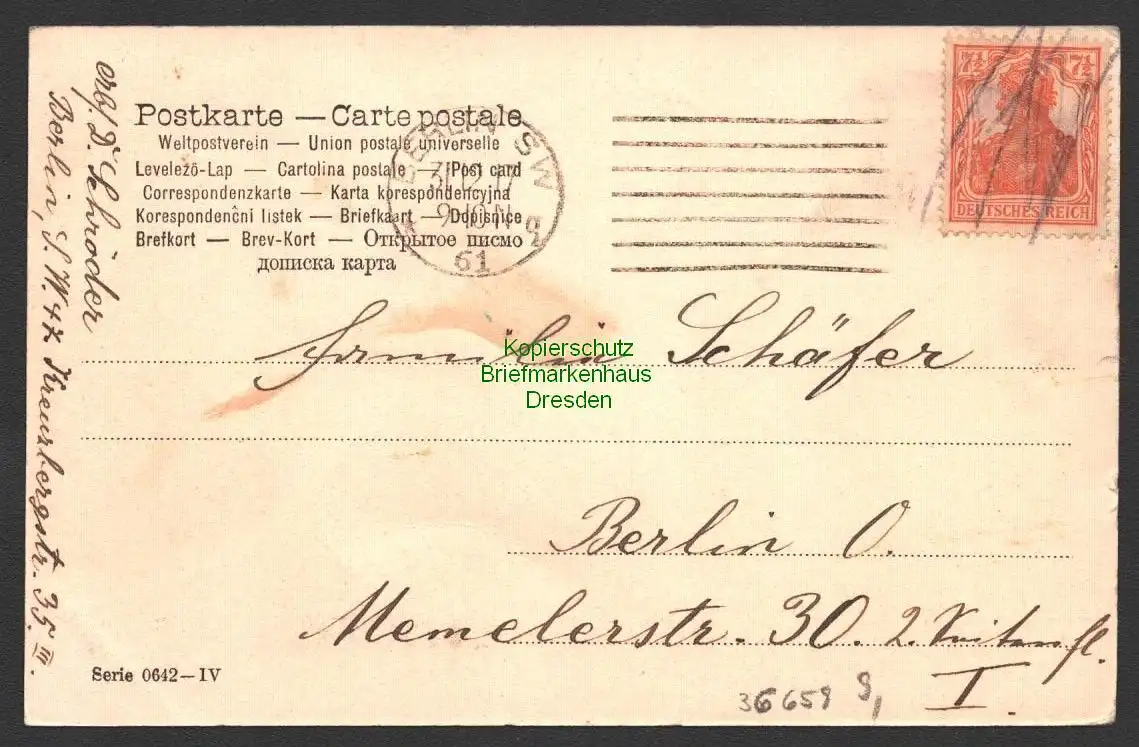 Postkarte — Carte postale
Weltpostverein — Union postale universelle
Levelező-Lap — Cartolina postale — Post card
Correspondenzkarte — Karta korespondencyjna
Korespondenční listek — Briefkaart — Dopisnice
Brefkort — Brev-Kort — Открытое писмо
дописка карта
BERLIN SW
9-10 N
61
7½ 7½
DEUTSCHES REICH
D. Schröder
Berlin, S.W. 47 Kreuzbergstr. 35 III.
Familie Schäfer
Kopierschutz
Briefmarkenhaus
Dresden
Berlin O.
Memelerstr. 30. 2.
I.
Serie 0642—IV
36659